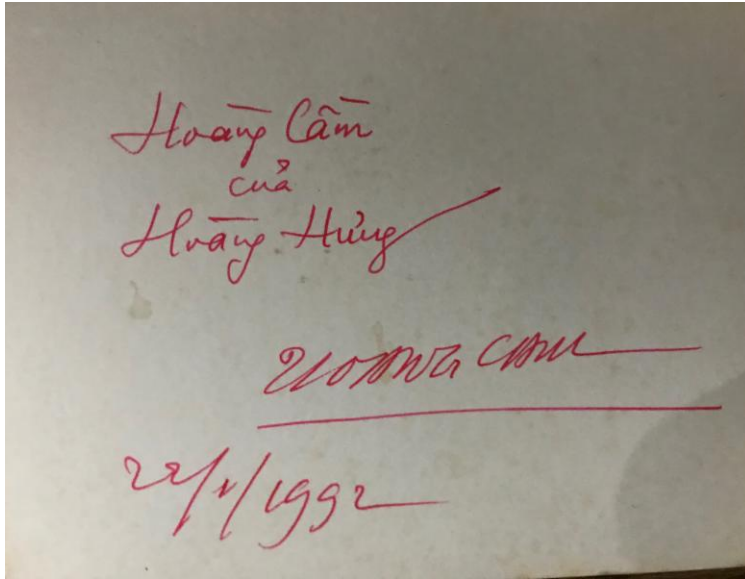 Hoàng Cầm
của
Hoàng Hưng
HOANG CAM
22/1/1992